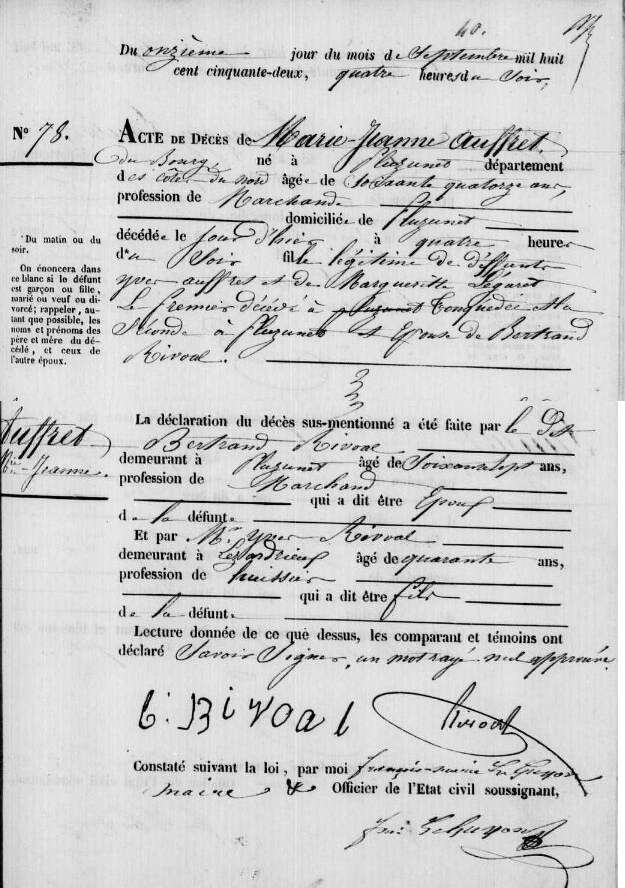 40.
Du onzième jour du mois de Septembre mil huit
cent cinquante-deux, quatre heures du Soir,
N° 78.
ACTE DE DÉCÈS de Marie-Jeanne Auffret.
du Bourg, né à Pluzunet département
des côtes du nord âgée de Soixante quatorze ans,
profession de Marchande
domiciliée de Pluzunet
décédée le jour d'hier à quatre heures
du Soir fille légitime de déffunts
yves auffret et de Marguerite Legaret
Le Premier décédé à pluzunet Tonquédec et la
Seconde à Pluzunet et Epouse de Bertrand
Rivoal.
' Du matin ou du
soir.
On énoncera dans
ce blanc si le défunt
est garçon ou fille,
marié ou veuf ou di-
vorcé; rappeler, au-
tant que possible, les
noms et prénoms des
père et mère du dé-
cédé, et ceux de
l'autre époux.
Auffret
Mie Jeanne.
La déclaration du décès sus-mentionné a été faite par le Dit
Bertrand Rivoal
demeurant à Pluzunet âgé de Soixante sept ans,
profession de Marchand
qui a dit être Epoux
de la défunte.
Et par Mr. Yves Rivoal
demeurant à Lezardrieux âgé de quarante ans,
profession de huissier
qui a dit être fils
de la défunte.
Lecture donnée de ce que dessus, les comparant et témoins ont
déclaré Savoir Signer, un mot rayé nul approuvé.
b. RIVOAL Rivoal
Constaté suivant la loi, par moi françois-marie
maire & Officier de l'Etat civil soussignant,